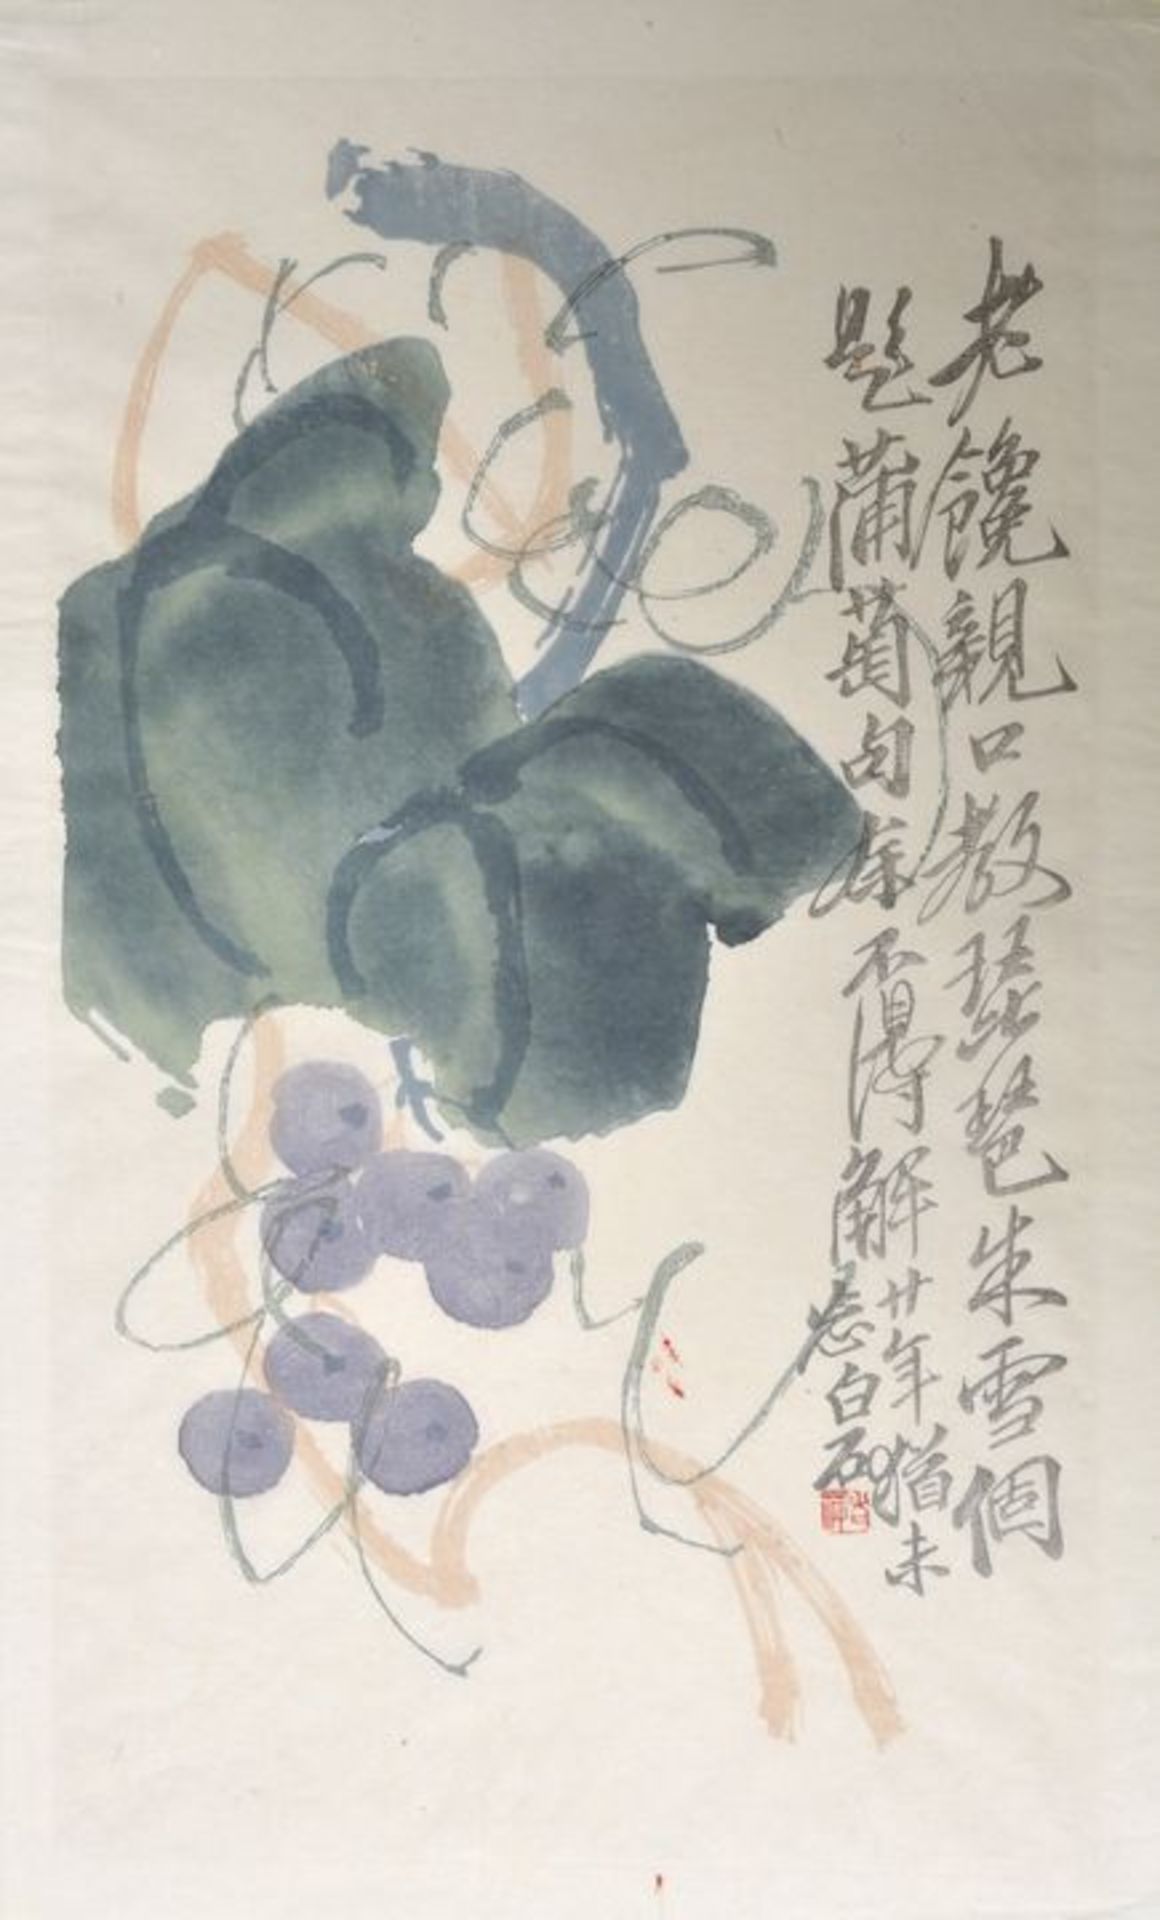 老饞親口教琵琶朱雪個
題蒲萄句余不得解廿年猶未
忘白石